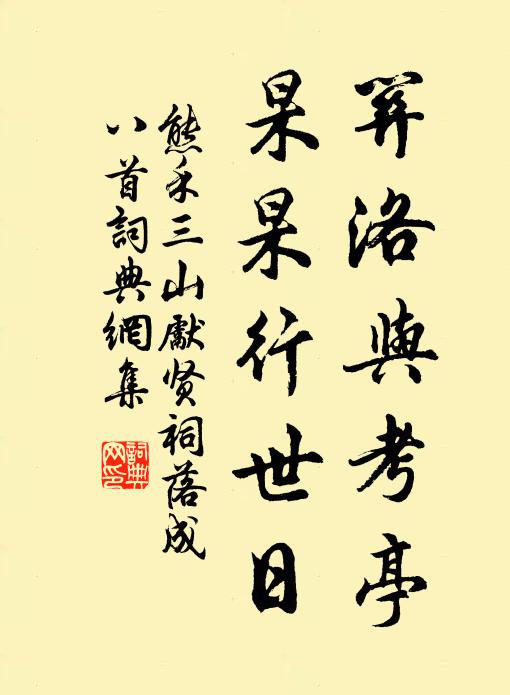 羿洛與考亭
杲杲行世日
熊禾三山獻贤祠落成
八首詞典網集
詞典
网印